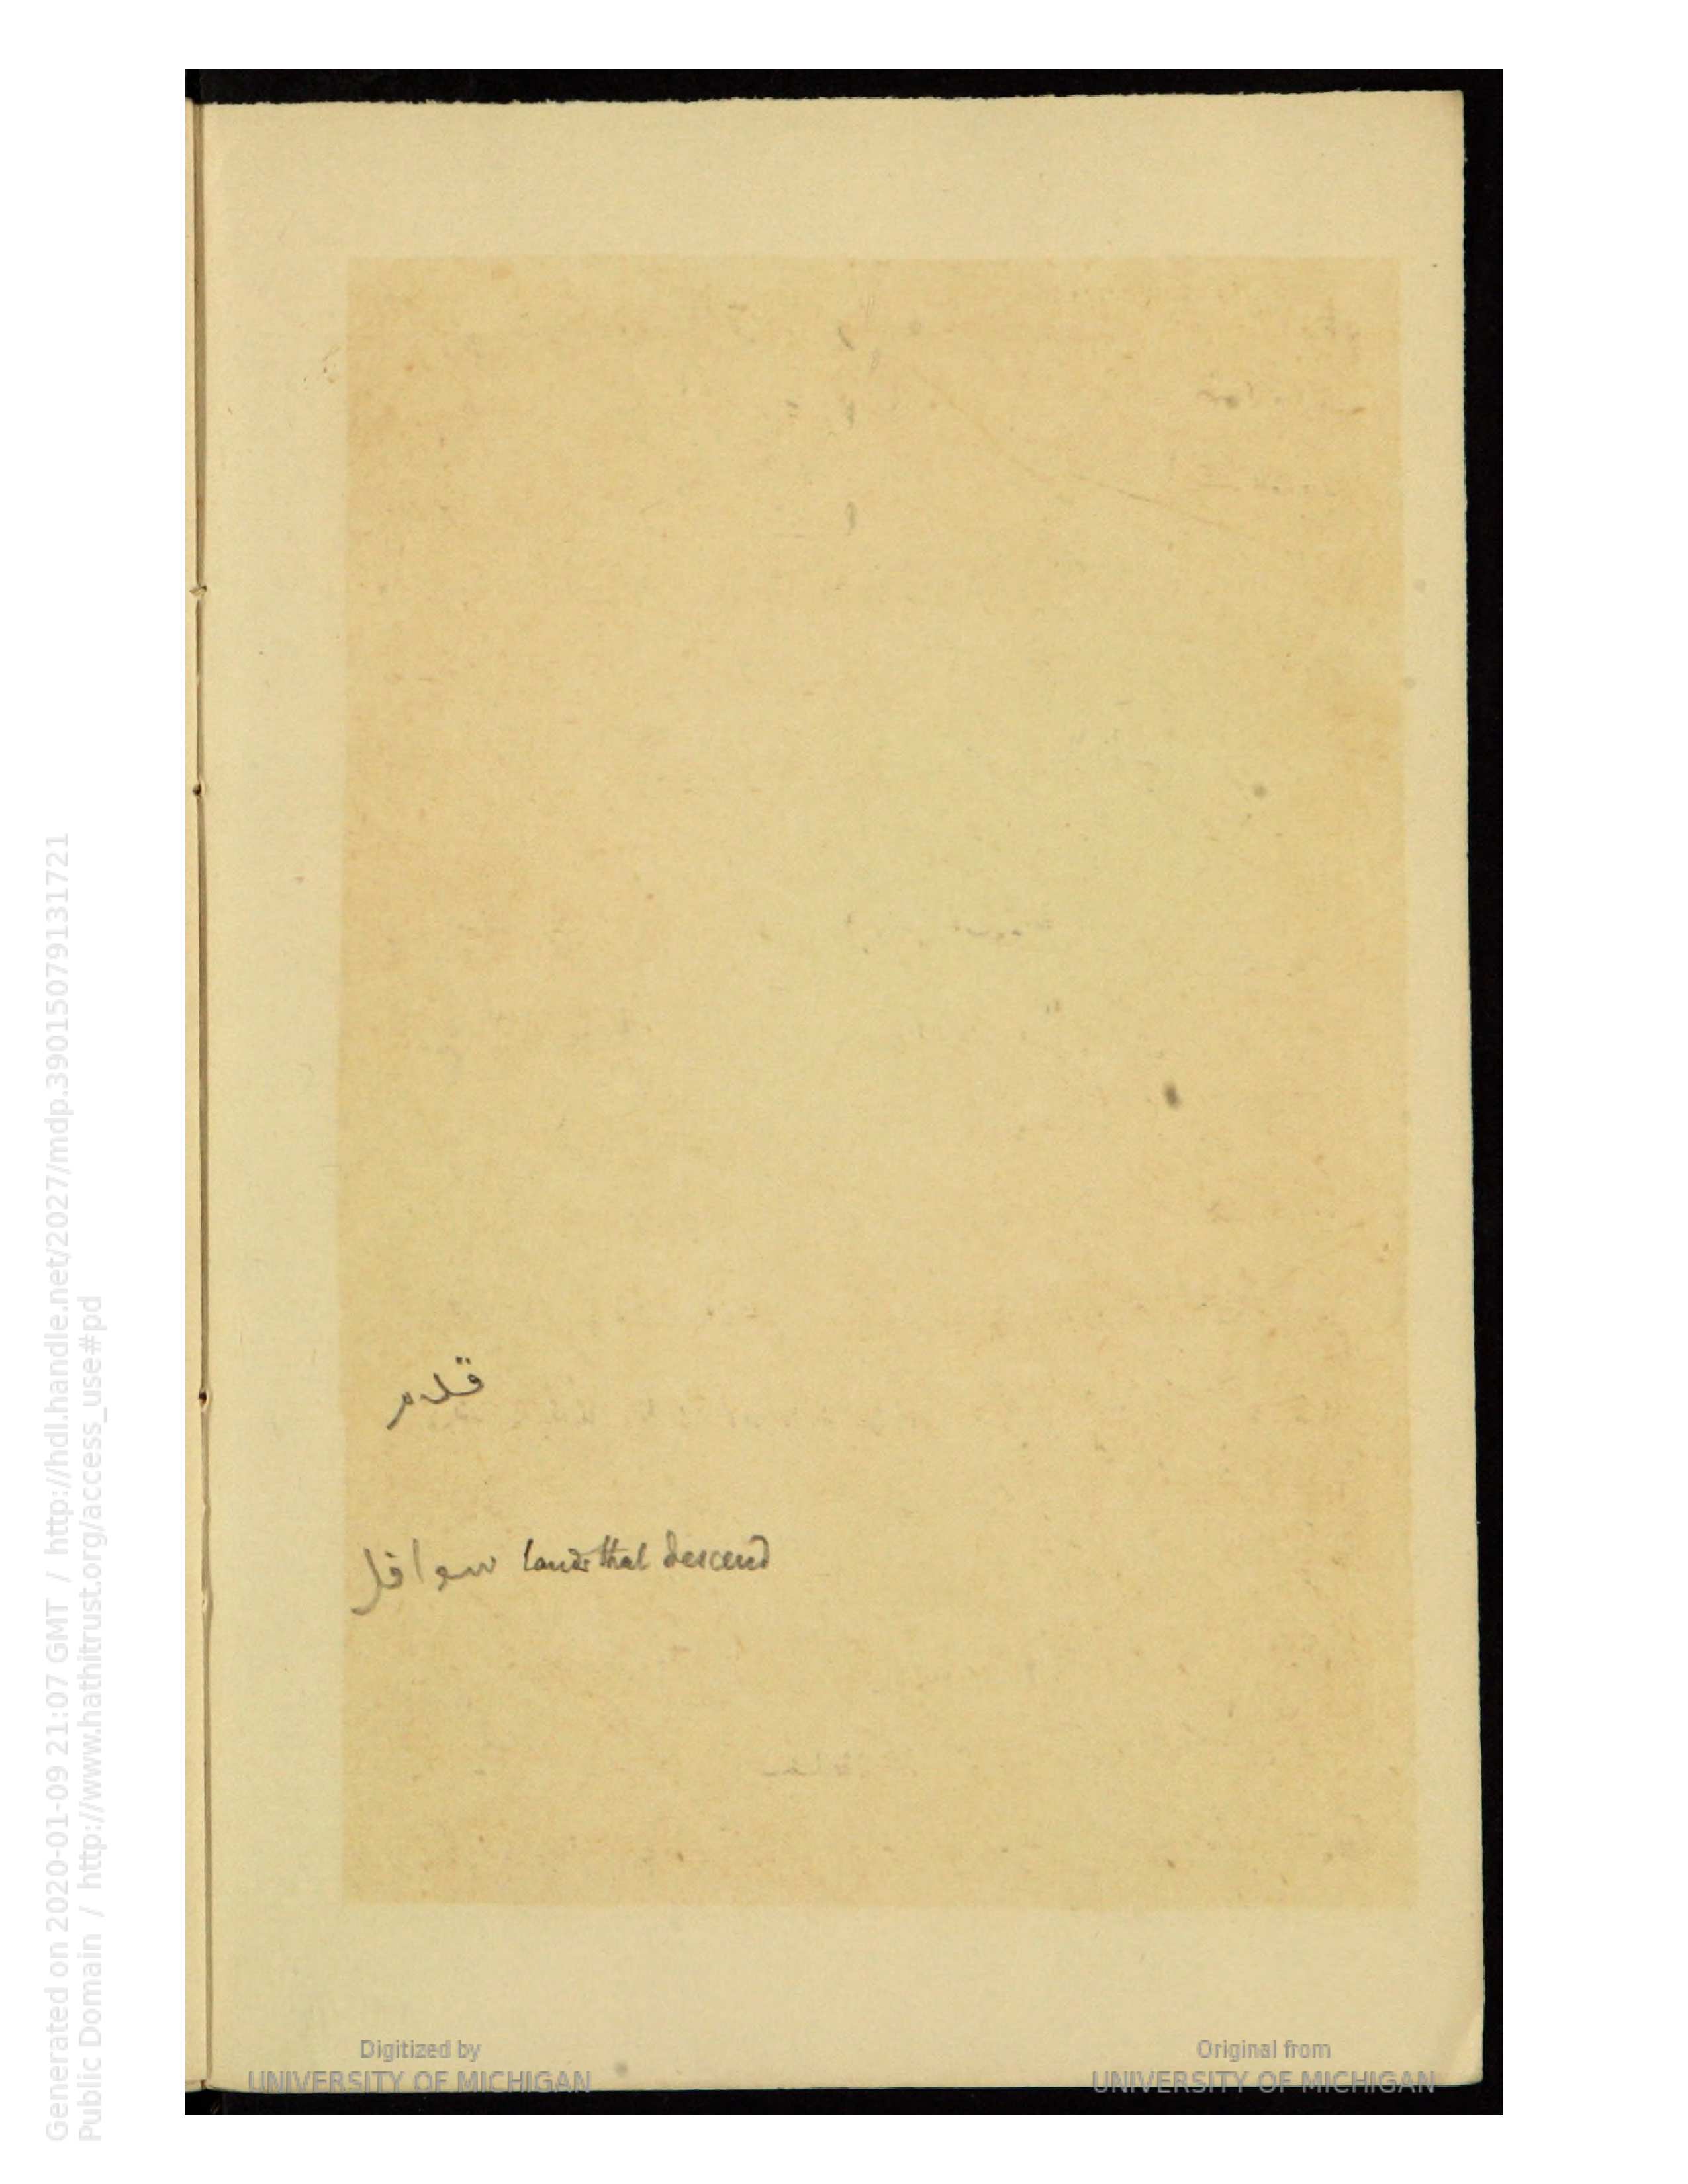 قلام
سوافل lands that descend
Digitized by
UNIVERSITY OF MICHIGAN
Original from
UNIVERSITY OF MICHIGAN
Generated on 2020-01-09 21:07 GMT / http://hdl.handle.net/2027/mdp.39015079131721
Public Domain / http://www.hathitrust.org/access_use#pd